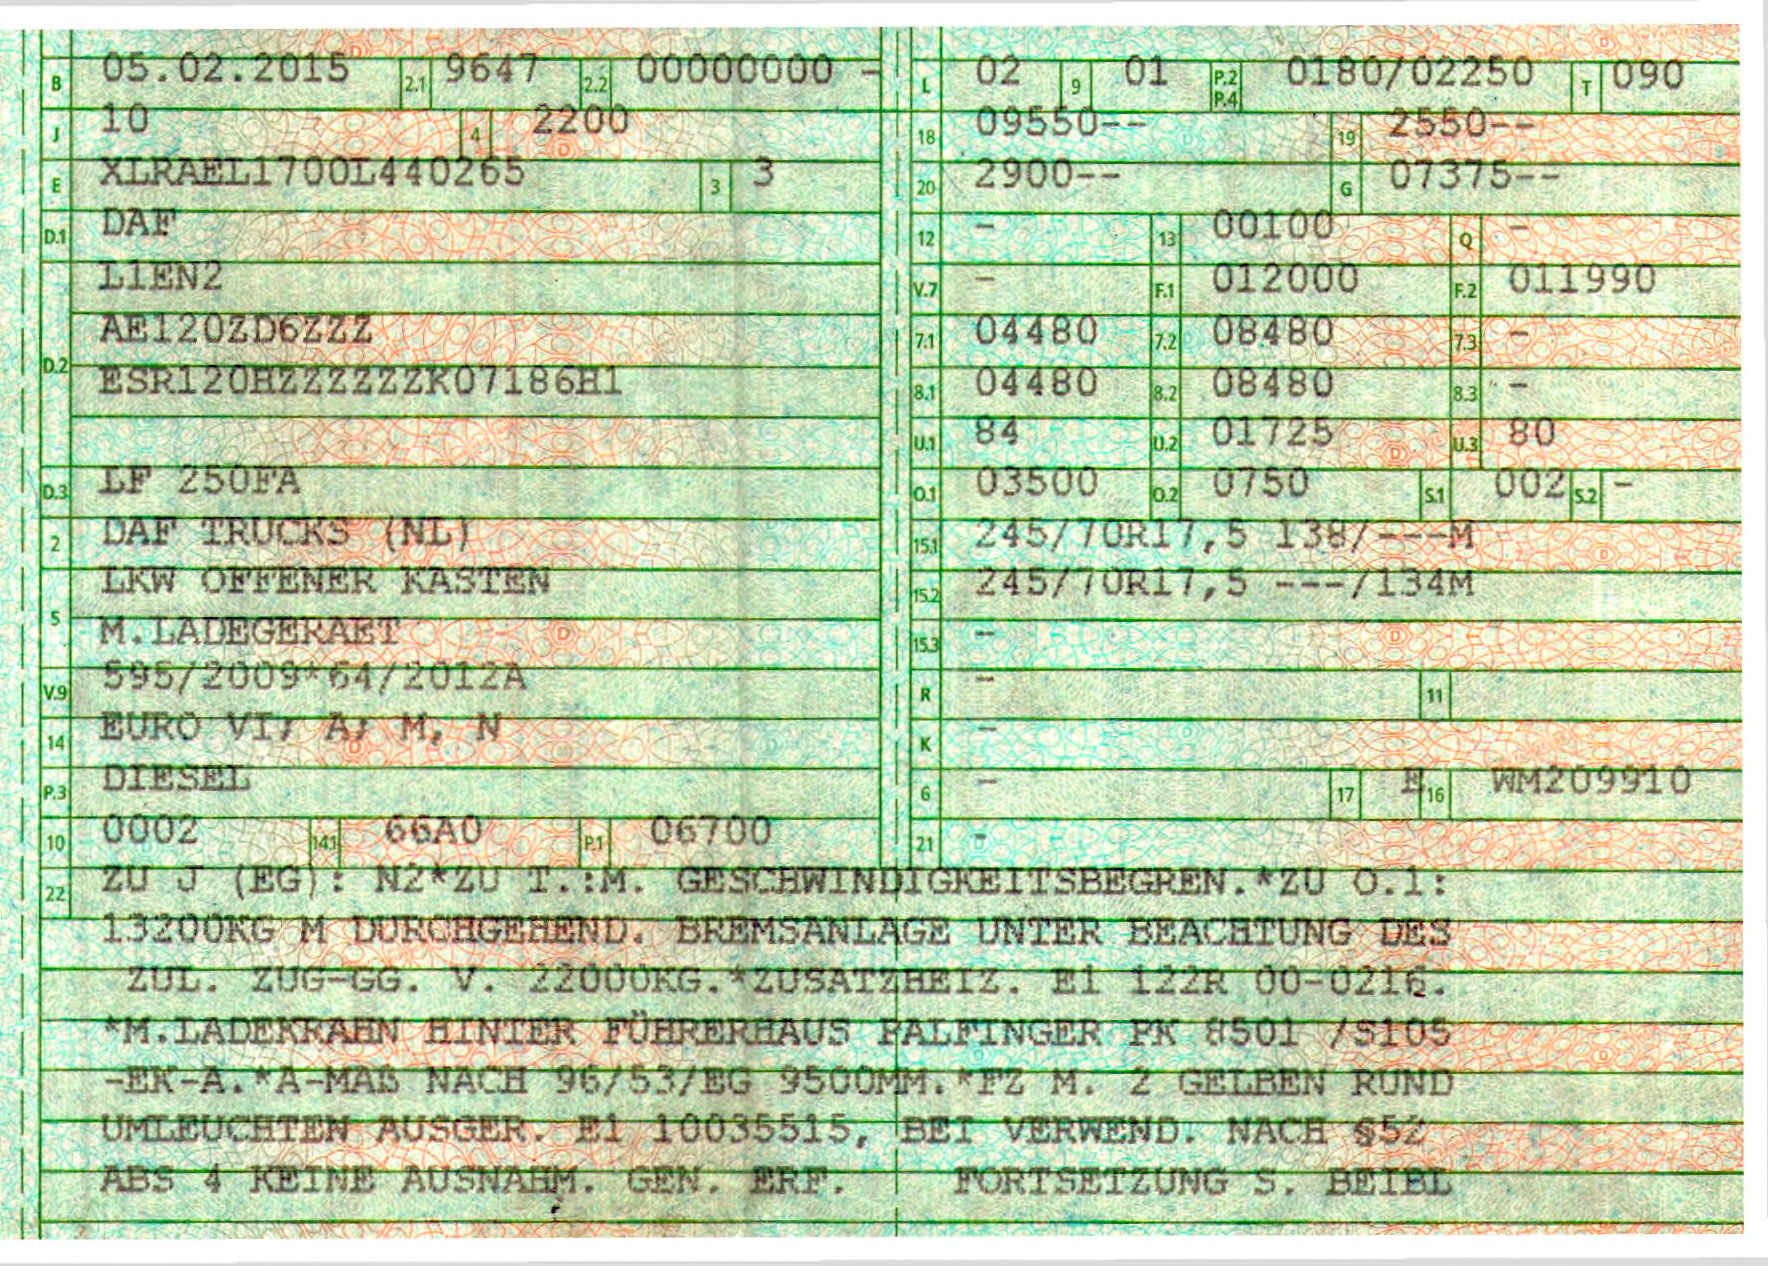 B 05.02.2015 2.1 9647 2.2 00000000 -
J 10 4 2200
E XLRAEL1700L440265 3 3
D.1 DAF
L1EN2
D.2 AE120ZD6ZZZ
ESR120HZZZZZZK07186H1
D.3 LF 250FA
2 DAF TRUCKS (NL)
5 LKW OFFENER KASTEN
M.LADEGERAET
V.9 595/2009*64/2012A
14 EURO VI; A; M, N
P.3 DIESEL
10 0002 14.1 66A0 P.1 06700
L 02 9 01 P.2 P.4 0180/02250 T 090
18 09550-- 19 2550--
20 2900-- G 07375--
12 - 13 00100 Q -
V.7 - F.1 012000 F.2 011990
7.1 04480 7.2 08480 7.3 -
8.1 04480 8.2 08480 8.3 -
U.1 84 U.2 01725 U.3 80
O.1 03500 O.2 0750 S.1 002 S.2 -
15.1 245/70R17,5 138/---M
15.2 245/70R17,5 ---/134M
15.3 -
R - 11
K -
6 - 17 E 16 WM209910
21 -
22 ZU J (EG): N2*ZU T.:M. GESCHWINDIGKEITSBEGREN.*ZU O.1:
13200KG M DURCHGEHEND. BREMSANLAGE UNTER BEACHTUNG DES
ZUL. ZUG-GG. V. 22000KG.*ZUSATZHEIZ. E1 122R 00-0216.
*M.LADEKRAHN HINTER FÜHRERHAUS PALFINGER PK 8501 /S105
-EK-A.*A-MAß NACH 96/53/EG 9500MM.*FZ M. 2 GELBEN RUND
UMLEUCHTEN AUSGER. E1 10035515, BEI VERWEND. NACH §52
ABS 4 KEINE AUSNAHM. GEN. ERF. FORTSETZUNG S. BEIBL